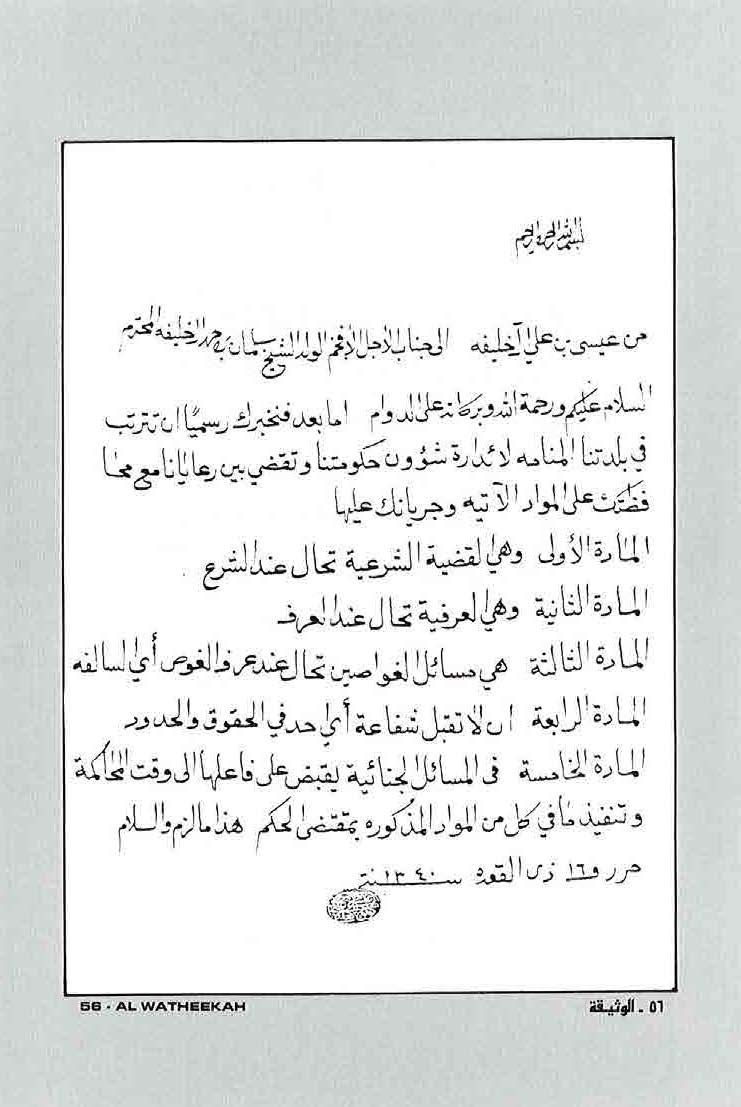 بسم الله الرحمن الرحيم
من عيسى بن علي آل خليفه الى جناب الاجل الافخم الولد الشيخ سلمان بن حمد الخليفه المحترم
السلام عليكم ورحمة الله وبركاته على الدوام اما بعد فنخبرك رسميًا ان تترتب
في بلدتنا المنامه لادارة شؤون حكومتنا وتقضي بين رعايانا مع محا
فظتك على المواد الآتيه وجريانك عليها
المادة الأولى وهي القضية الشرعية تحال عند الشرع
المادة الثانية وهي العرفية تحال عند العرف
المادة الثالثة هي مسائل الغواصين تحال عند عرف الغوص أي السالفه
المادة الرابعة ان لا تقبل شفاعة أي احد في الحقوق والحدود
المادة الخامسة في المسائل الجنائية يقبض على فاعلها الى وقت المحاكمة
وتنفيذ ما في كل من المواد المذكوره بمقتضى الحكم هذا ما لزم والسلام
حرر و١٦ ذي القعده سنة ١٣٤٠
56 - AL WATHEEKAH
٥٦ - الوثيقة